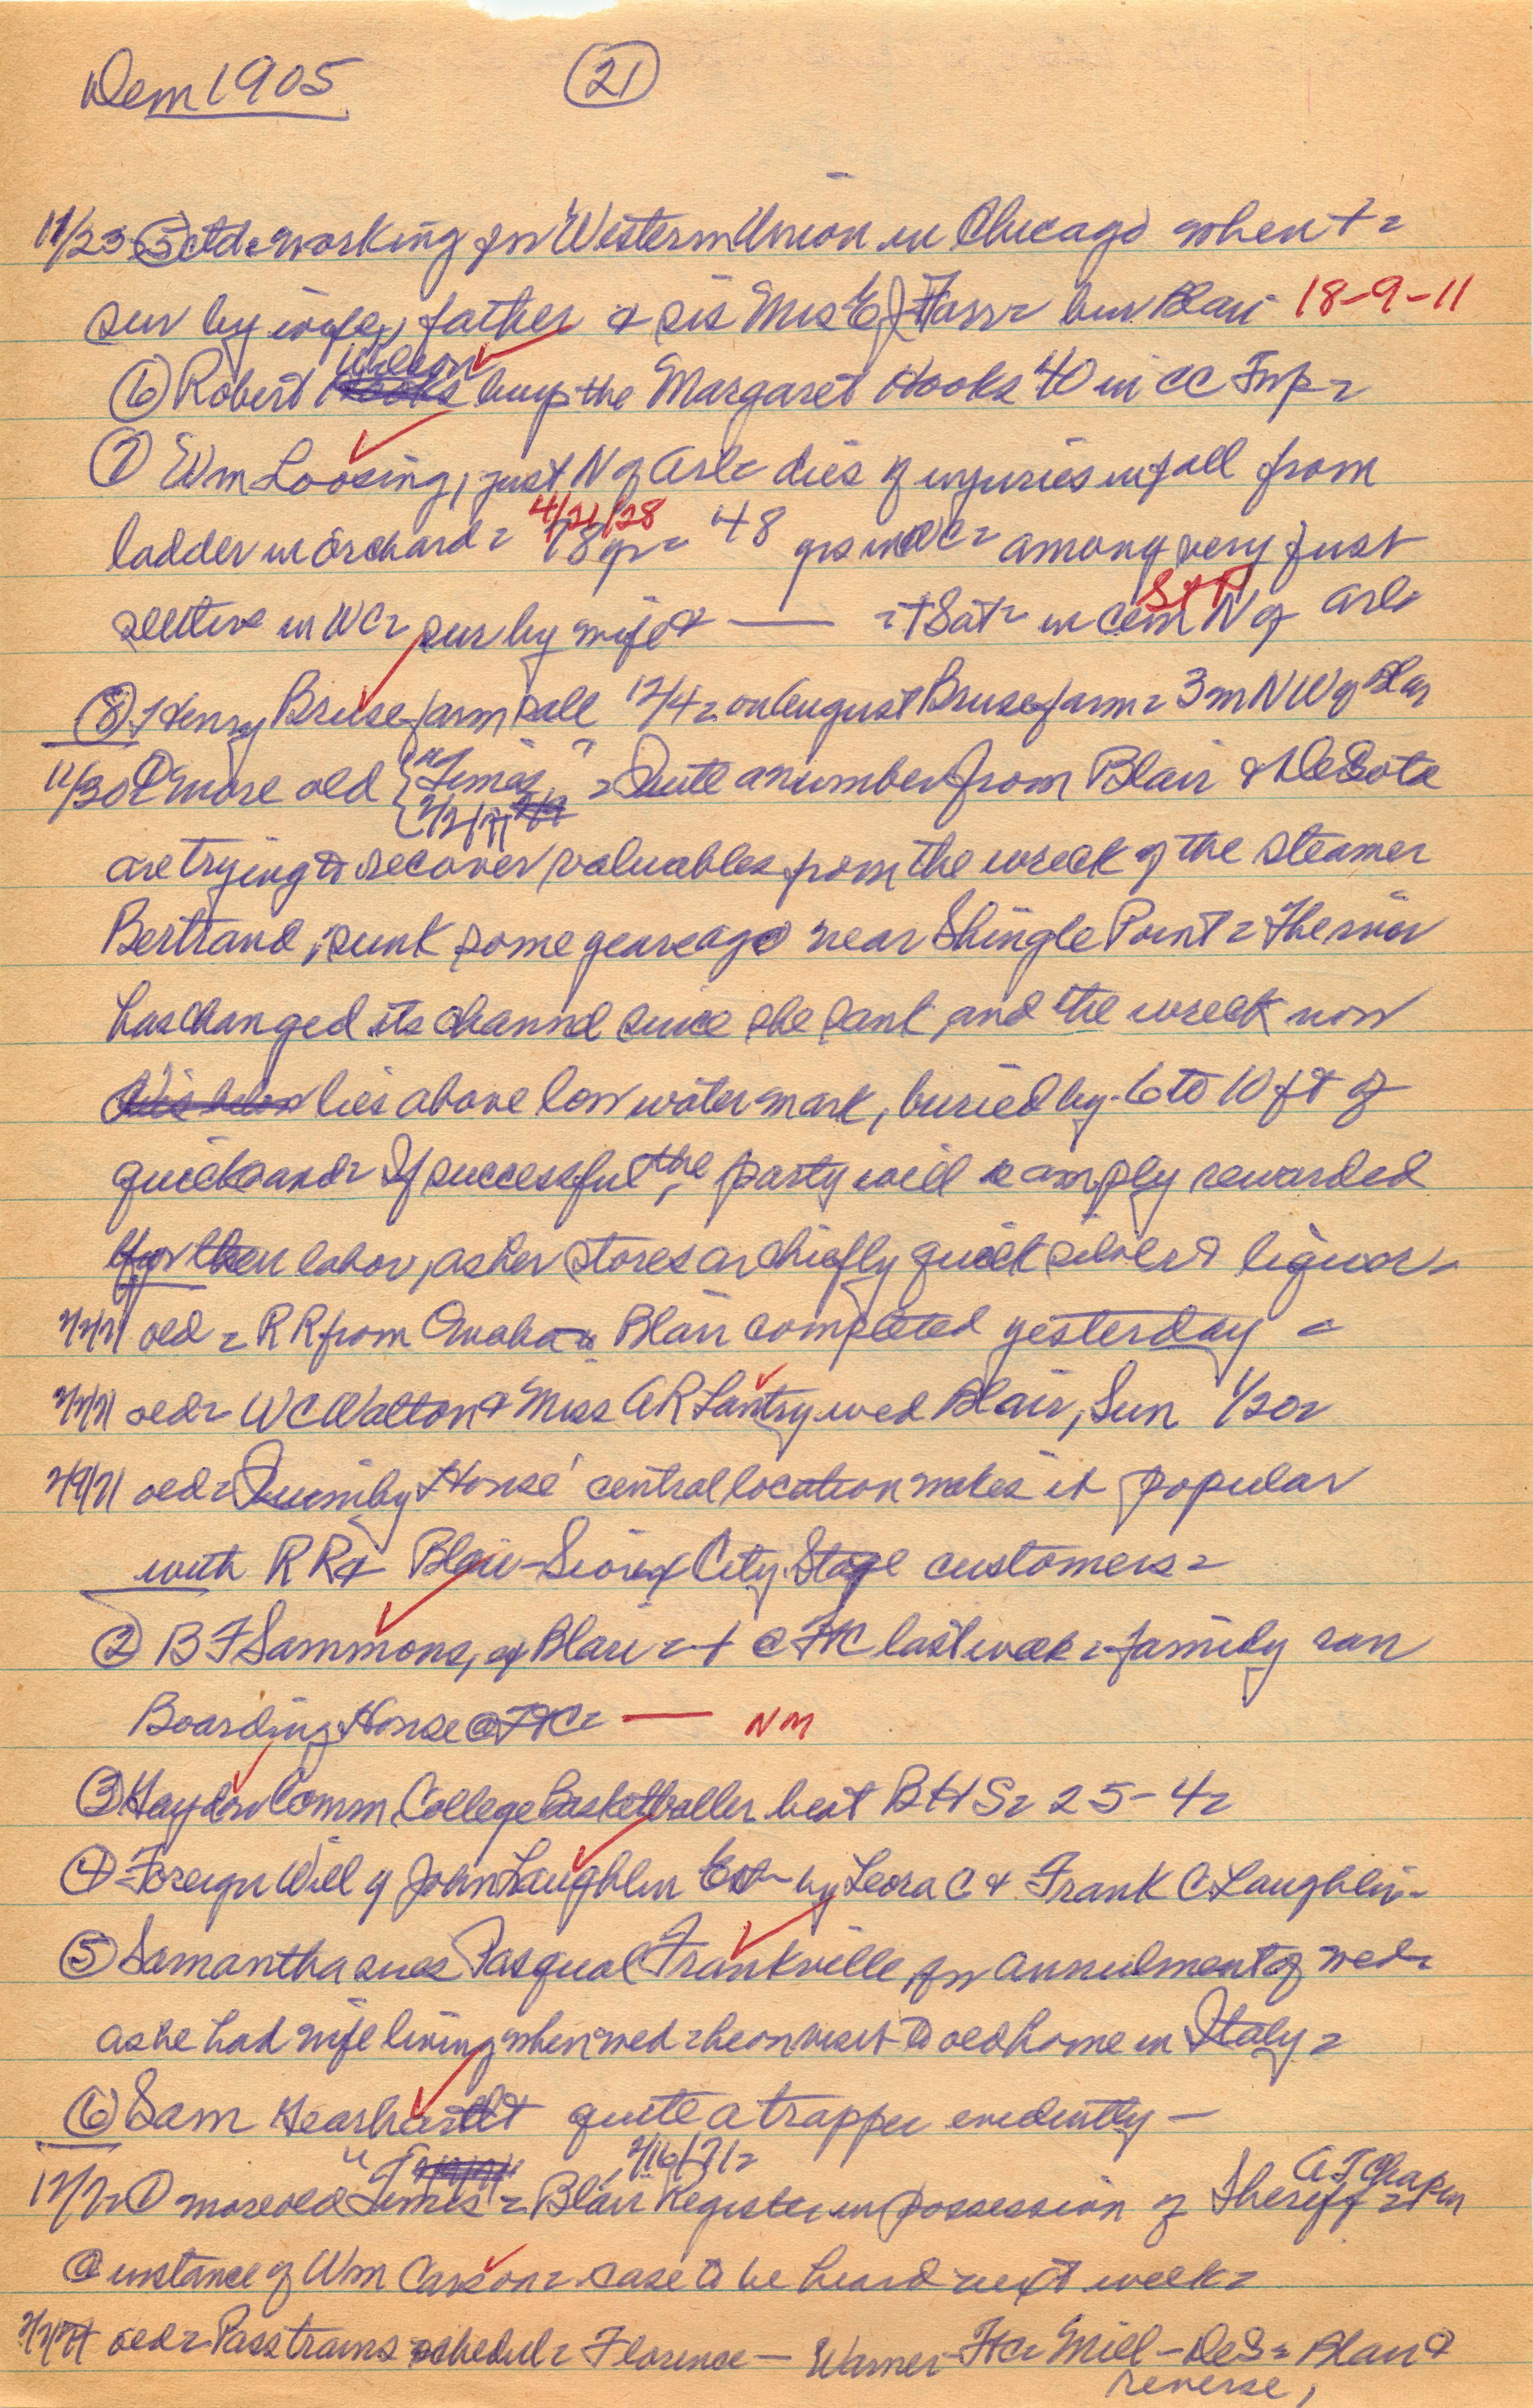 Dem 1905 (21)
11/23 (5) ctd = working for Western Union in Chicago when + =
sur by wife, father & sis Mrs E J Farr = bur Blair 18-9-11
(6) Robert Wilson buys the Margaret Hooks 40 in CC Twp =
(7) Wm Loosing, just N of Arl = dies of injuries in fall from
ladder in orchard = 4/21/28 78 yr = 48 yrs in WC = among very first
settlers in WC = sur by wife & — = + Sat = in cem N of Arl = St P
(8) Henry Bruse farm sale 12/4 = on August Bruse farm = 3 m NW of Blair
11/30 (1) more old "Times" 2/2/71 = Quite a number from Blair & DeSota
are trying to recover valuables from the wreck of the steamer
Bertrand, sunk some years ago near Shingle Point = The river
has changed its channel since she sank, and the wreck now
lies above low water mark, buried by 6 to 10 ft of
quicksand = If successful, the party will be amply rewarded
for their labor, as her stores are chiefly quick silver & liquor =
2/2/71 old = RR from Omaha to Blair completed yesterday =
2/2/71 old = WC Walton & Miss AR Lantry wed Blair, Sun 1/20 =
2/9/71 old = Quimby House' central location makes it popular
with RR & Blair-Sioux City Stage customers =
(2) B F Sammons, of Blair = + @ FtC last week = family ran
Boarding House @ FtC = — NM
(3) Haydn Comm. College Basketballer beat BHS = 25-4 =
(4) Foreign Will of John Laughlin Est = by Leora C & Frank C Laughlin =
(5) Samantha sues Pasqual Frankville, for annulment of wed =
as he had wife living when wed = he on visit to old home in Italy =
(6) Sam Gearhart quite a trapper evidently —
12/7 = (1) more old "Times" 2/16/71 = Blair Register in possession of Sheriff A T Chapin
@ instance of Wm Carson = case to be heard next week =
old = Pass trains schedul = Florence — Warner - FtC = Mill - DeS = Blair &
reverse,